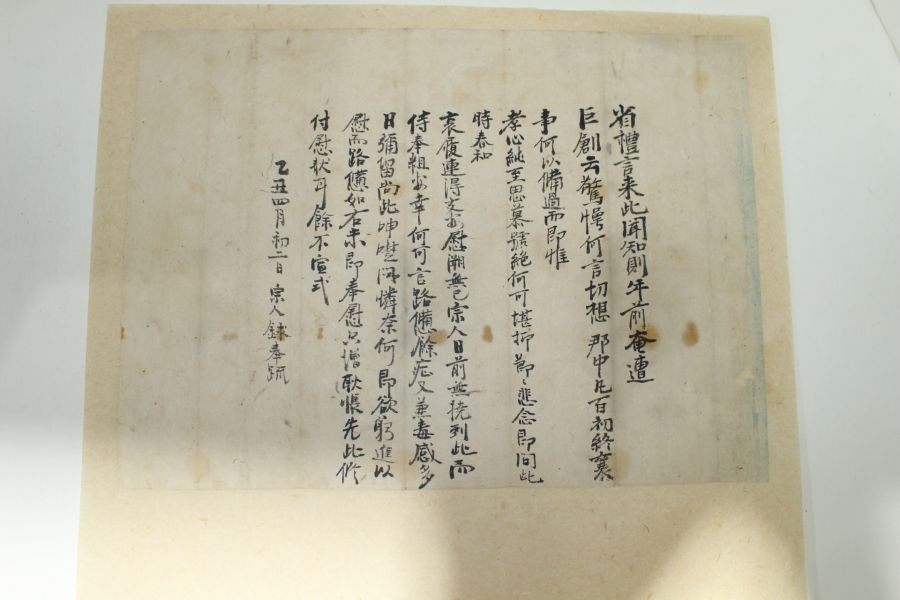 省禮言来此聞知則年前奄遭
巨創云驚愕何言切想那中凡百初終襄
事何以備過而即惟
孝心純至思慕號絶何可堪抑節〻悲念即問此
時春和
哀履連得支安慰溯無已宗人日前無撓到此而
侍奉粗安幸何可言路憊餘症又兼毒感多
日彌留尚此呻囈悶憐奈何即欲躬進以
慰而路憊如右未即奉慰只增耿悵先此修
付慰狀耳餘不宣式
乙丑四月初二日 宗人 奉疏